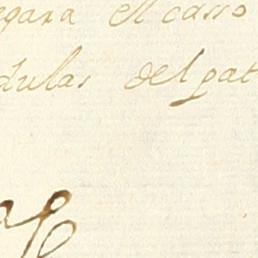 egara el casso
dulas del pat